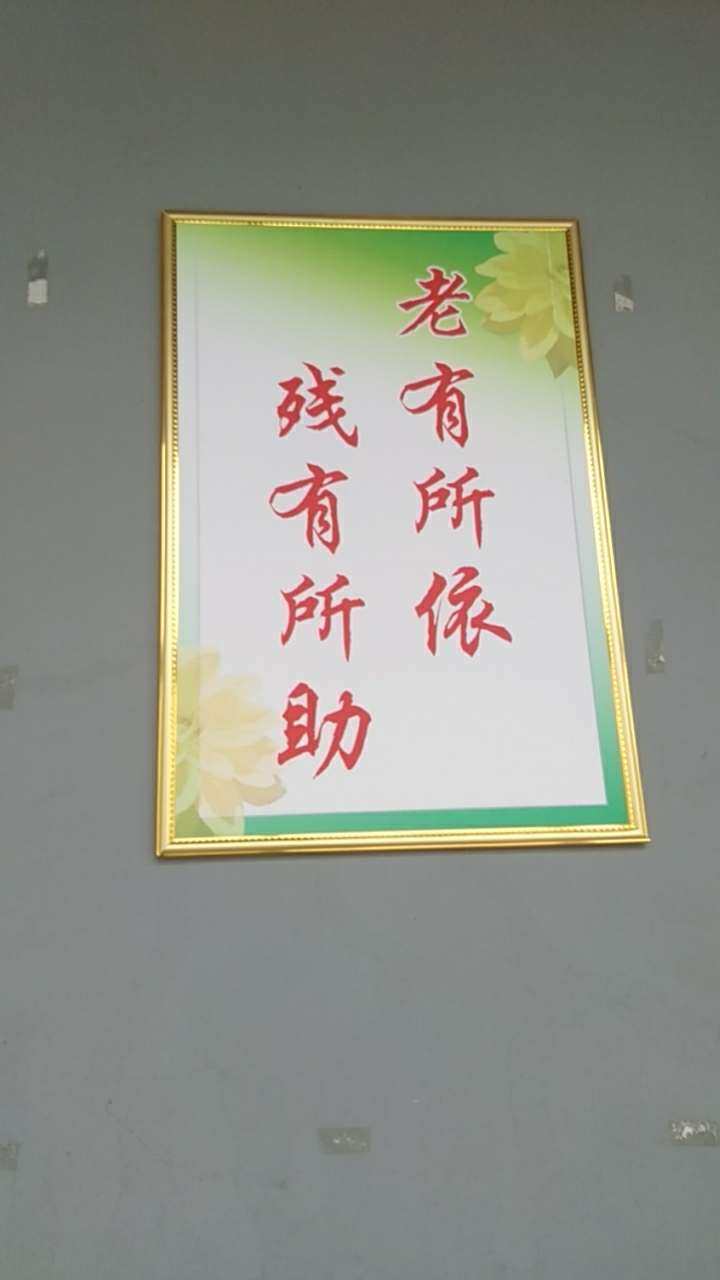 老有所依
残有所助